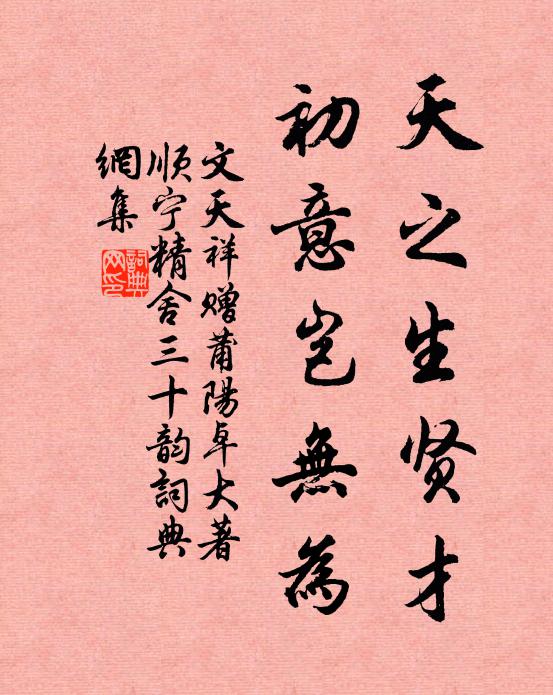 天之生贤才
初意岂無為
文天祥赠莆陽卓大著
顺宁精舍三十韵詞典
網集
詞典網印